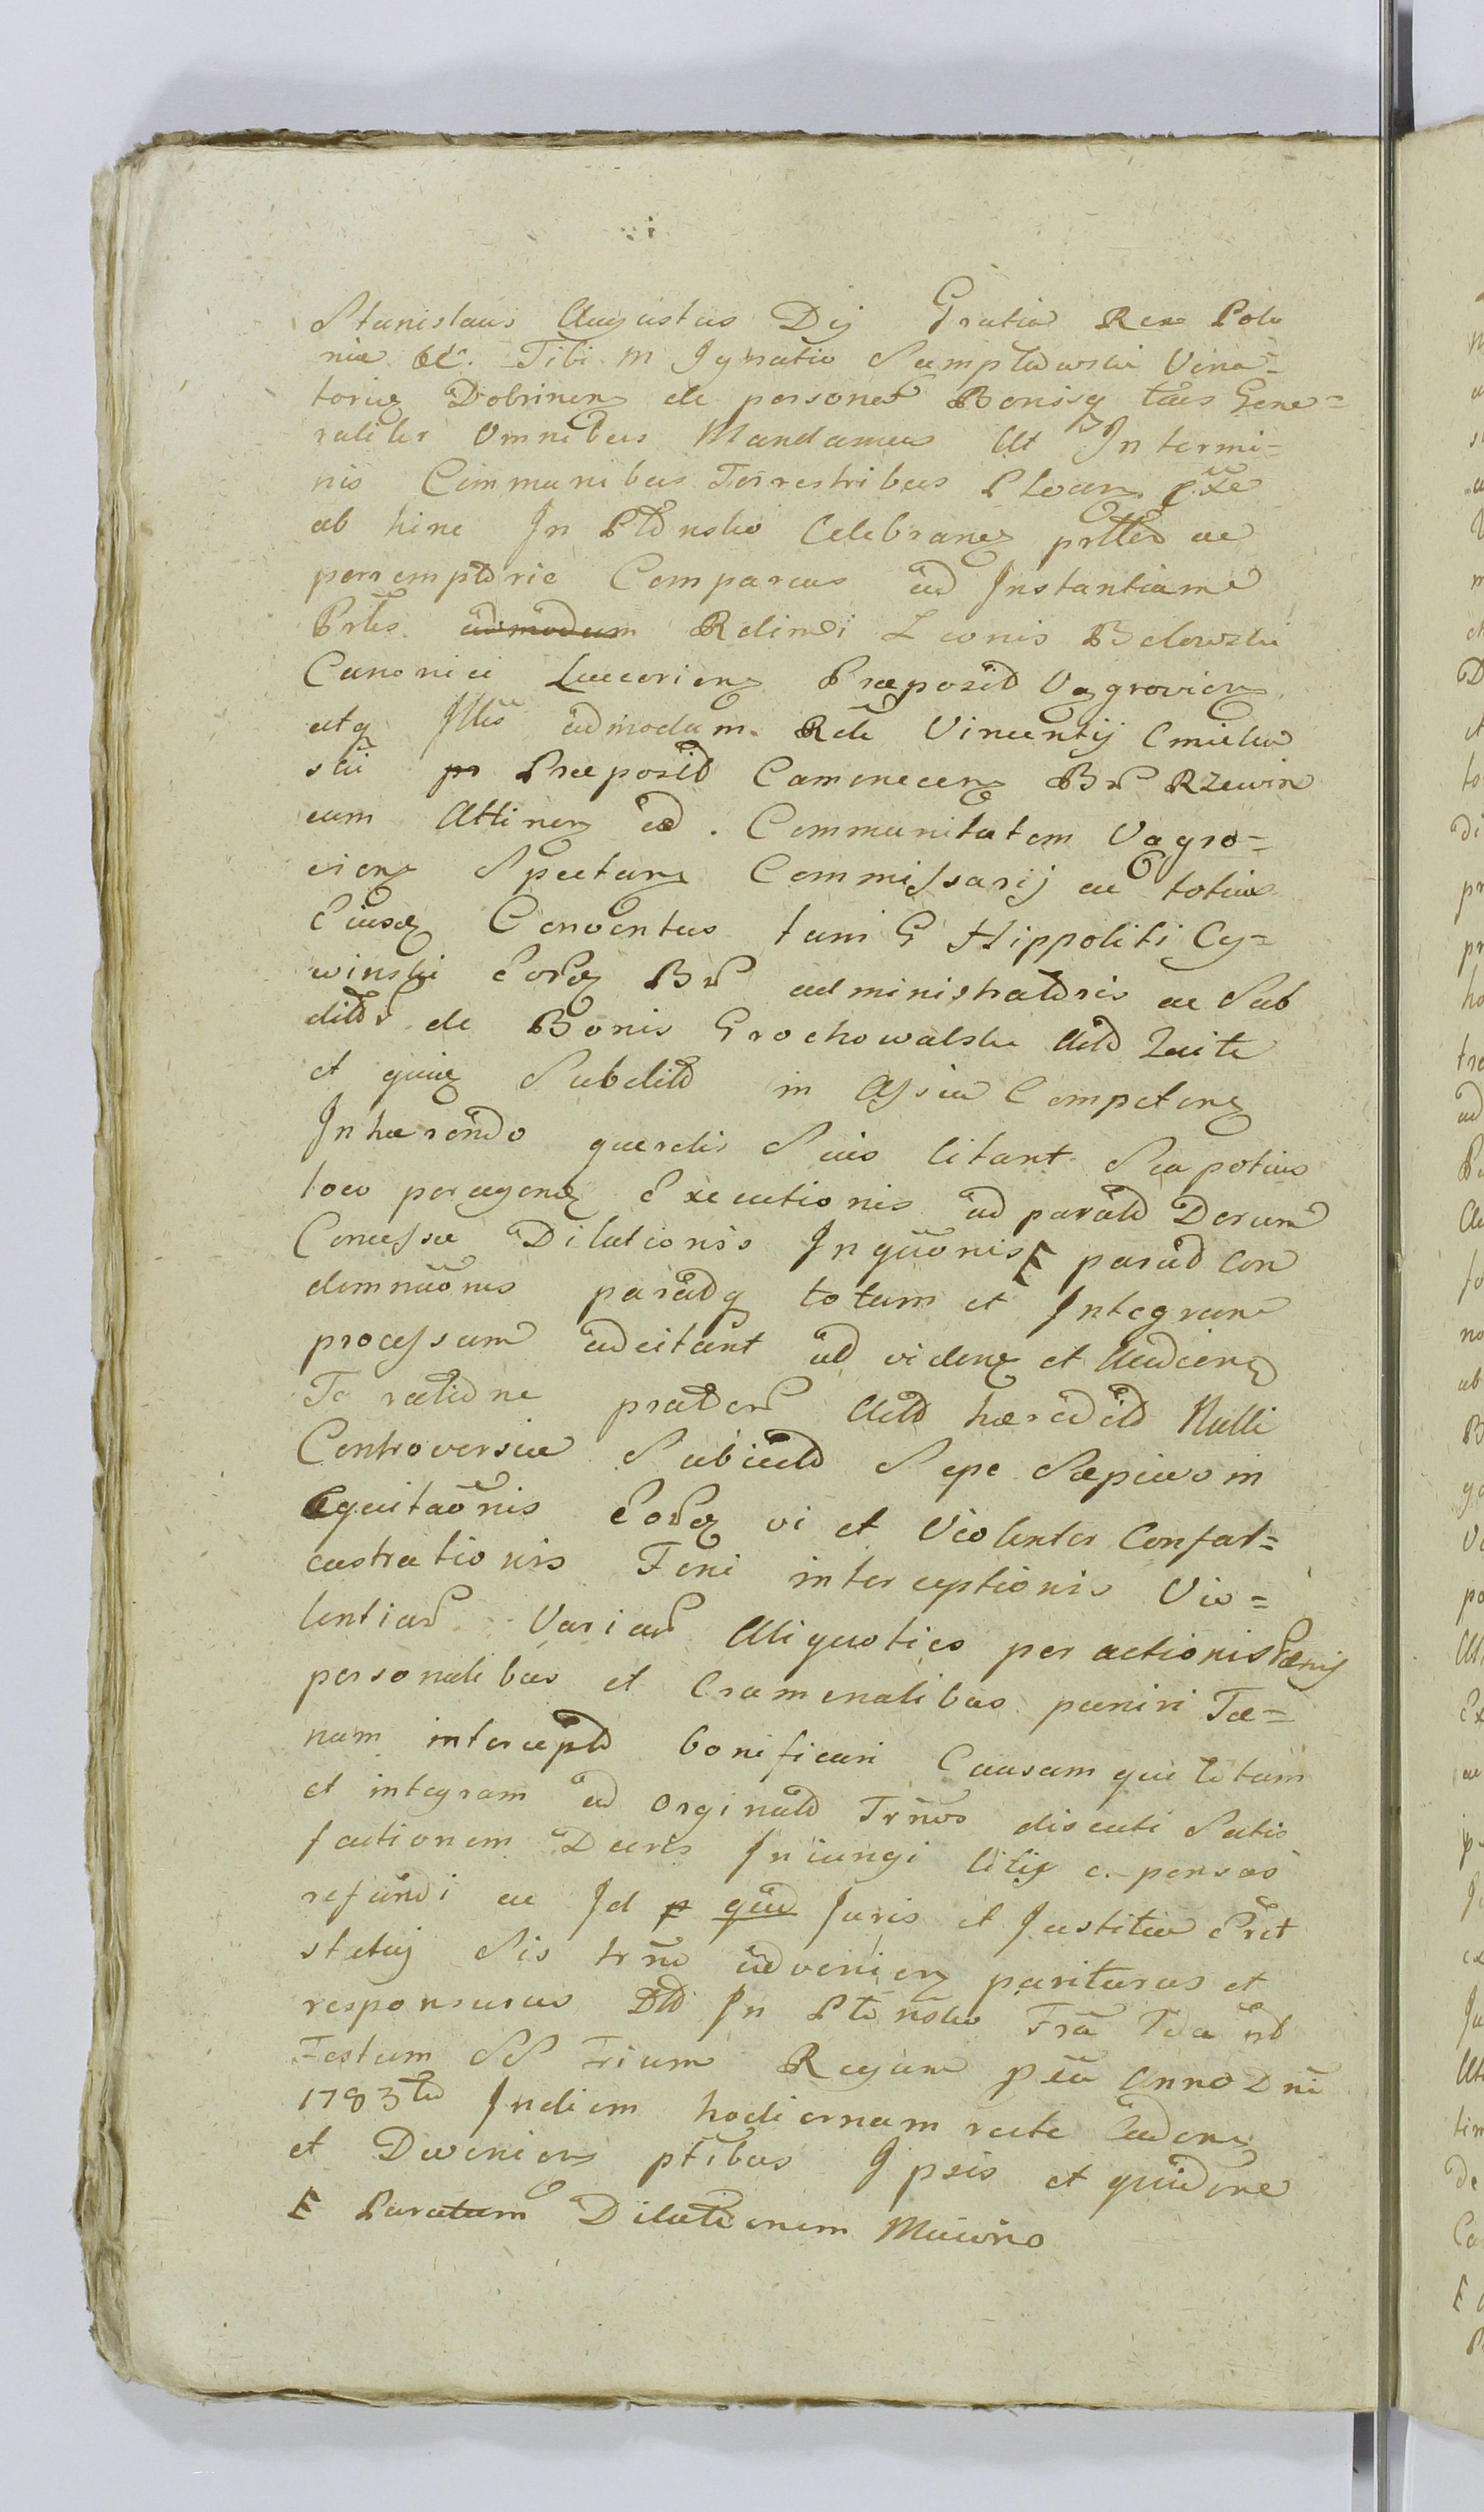 Stanislaus Augustus Dej Gratia Rex Polo
niæ &c. Tibi M Ignatio Sumptowski Vena=
toriæ Dobrinen de personis Bonisq tuis Gene=
raliter Omnibus Mandamus Ut In termi=
nis Communibus Terrestribus Plocen
ab hinc In Plonsko Celebran ac
perremptorie Compareas ad Instantiam
admodum Rdimdi Leonis Belowski
Canonici Luceorien Præposid Vagrovien
atq Illis admodum Rdi Vincentij Cmielew
ski pr Præposid Camenecen Bnr Rzewin
cum Attinen ad Communitatem Vagro=
vien Spectan Commissarij ac totius
Eiusq Conventus tum G Hippoliti Cy=
winski Eorq Bnr administratoris ac Sub
ditor de Bonis Grochowalsk
et Subdito in Assia Competen
Inhærendo querelis Suis Citant Seu potius
loco peragend Executionis ad parato Dorum
Concessæ Dilationis Inquonis E parad Con
demnaõnis paradq totum et Integrum
processum adcitant ad viden et Audien
Te ratione prator hæredito Nulli
Controversiæ Subiecto Sepe Sæpius in
Equitaõnis Eorq vi et Violenter Confal=
castrationis Feni interceptionis Vio=
lentiar Variar Aliquoties peractionis Pænis
personalibus et Craminalibus puniri Fæ=
num intercepto bonificari Causam que totam
et integram ad Orginalo Trnos discuti Satis
factionem Decris Iniungi Litis expensas
refundi ac Id p quid Juris et Justitiæ Erit
statuj Sis trno advenien pariturus et
responsurus Dto In Plonsko Fra
Festum SS Trium Regum Anno Dni
1783tio Indiem hodiernam recte Caden
et Devenien ptibus Ipsis et quidem
E Paratam Dilationem